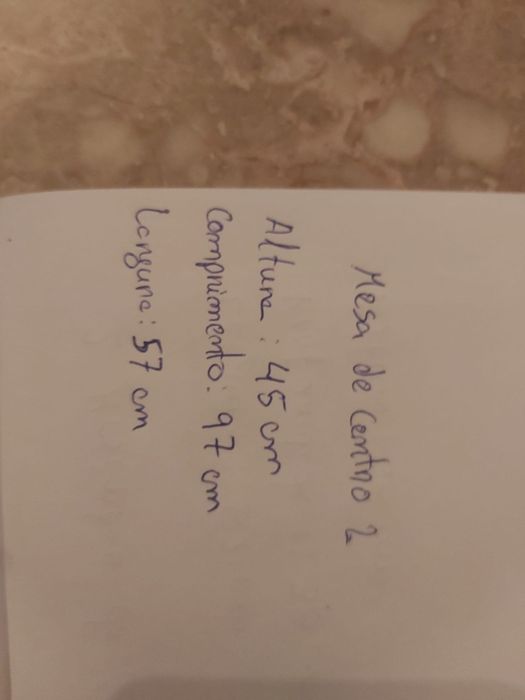 Mesa de Centro 2
Altura : 45 cm
Comprimento : 97 cm
Largura : 57 cm